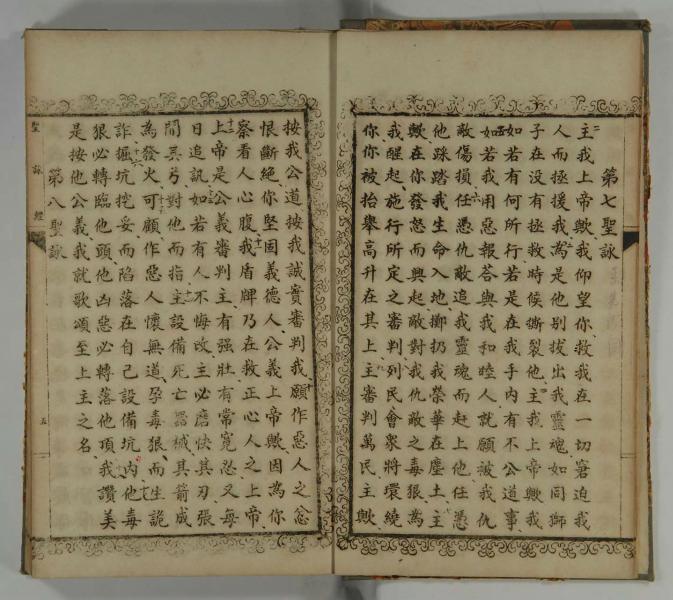 第七聖詠
二主我上帝歟我仰望你救我在一切窘迫我
人而拯援我三為是他別拔出我靈魂如同獅
子在没有拯救時候撕裂他主我上帝歟我
如若有何所行若是在我手内有不公道事
五如若我用惡報荅與我和睦人就願被我仇
敵傷損六任憑仇敵追我靈魂而赶上他任憑
他踩踏我生命入地擲扔我榮華在塵土主
歟在你發怒而興起敵對我仇敵之毒狠為
我醒起施行所定之審判列民會衆將環繞
你你被抬舉高升在其上主審判萬民主歟
按我公道按我誠實審判我十願作惡人之忿
恨斷絶你堅固義德人公義上帝歟因為你
察看人心腹十一我盾牌乃在救正心人之上帝
十二上帝是公義審判主有强壯有常寬忍又每
日追訊十三如若有人不悔改主必磨快其刃張
開其弓對他而指主設備死亡噐械其箭成
為發火十五可顧作惡人懷無道孕毒狠而生詭
詐十六掘坑挖妥而陷落在自己設備坑内十七他毒
狠必轉臨他頭他凶惡必轉落他頂我讚美
是按他公義我就歌頌至上主之名
第八聖詠
聖詠經
五